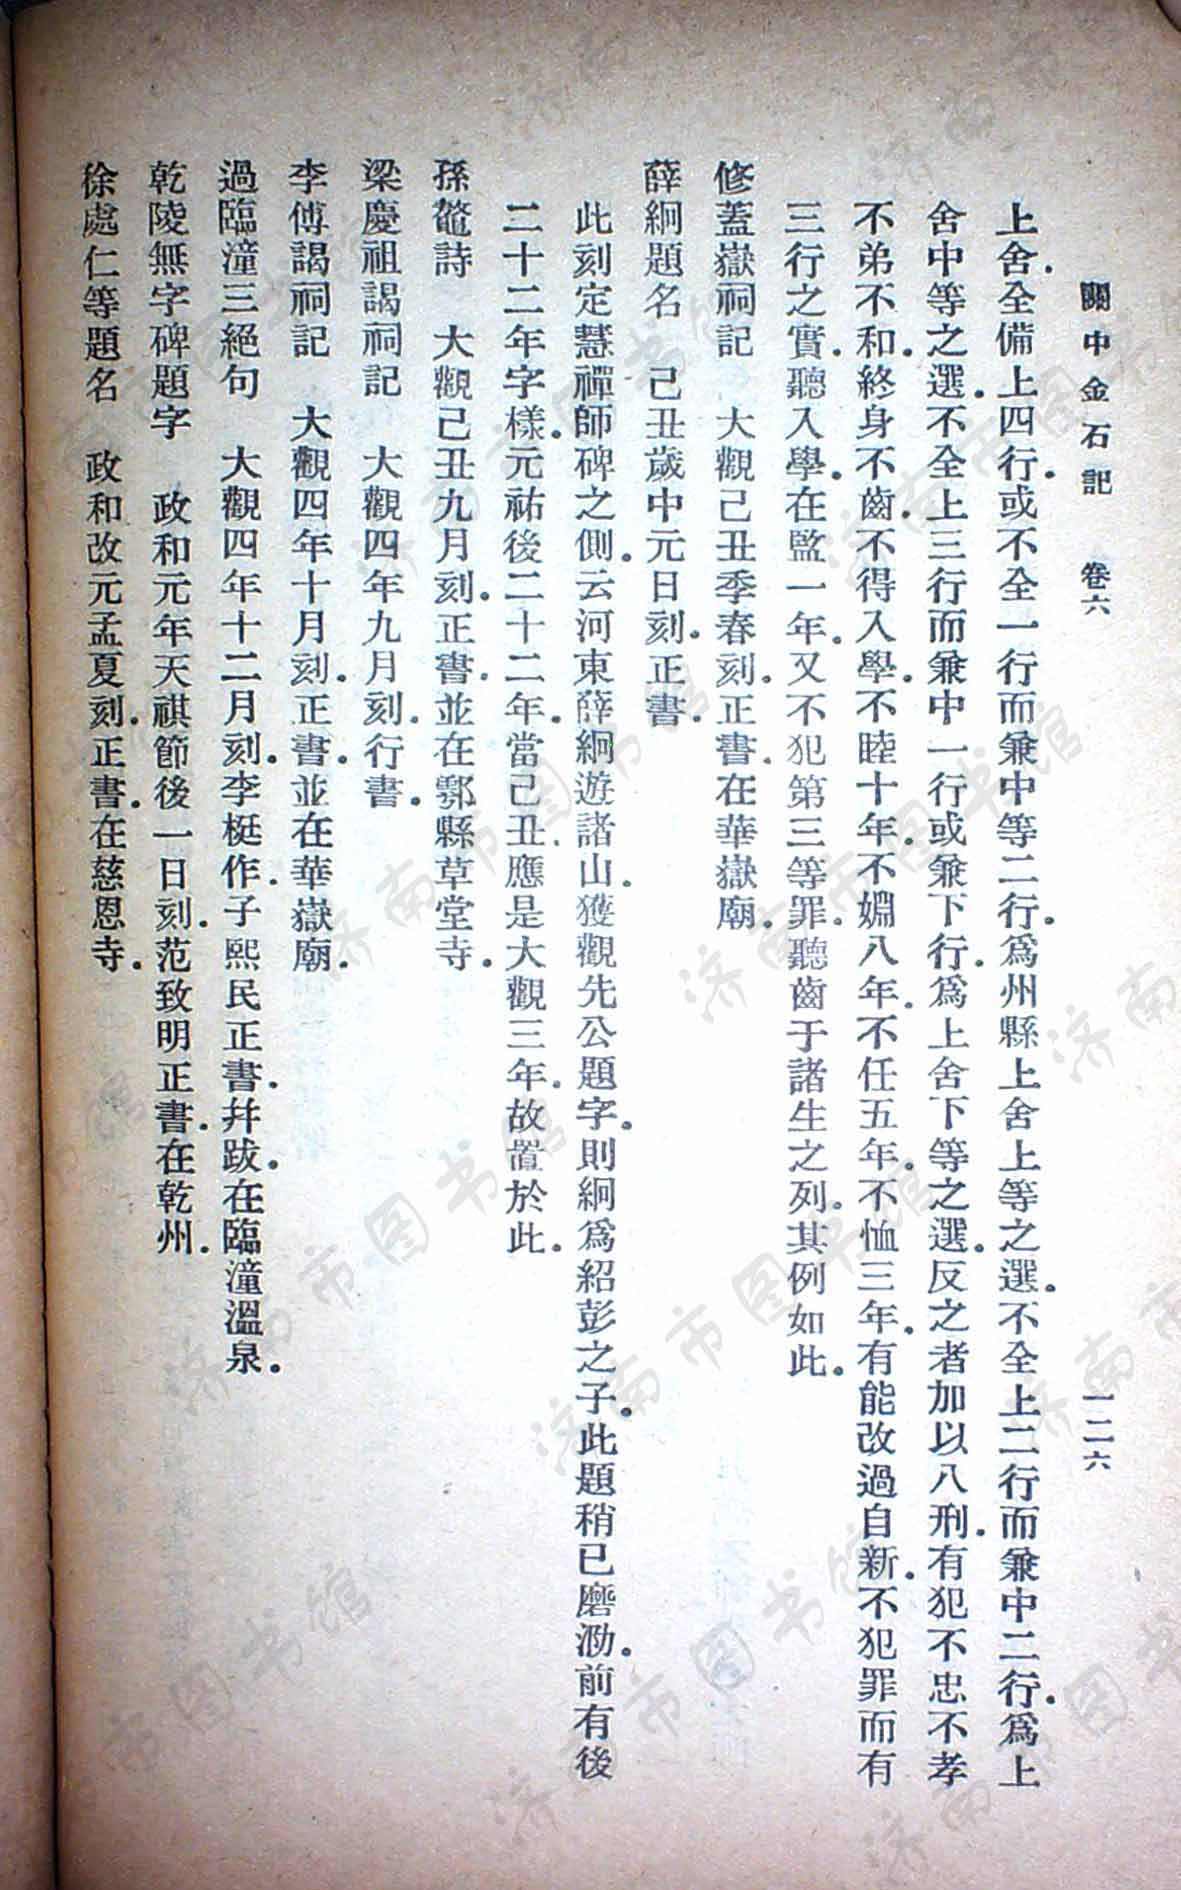 關中金石記　卷六　一二六
上舍.全備上四行.或不全一行而兼中等二行.爲州縣上舍上等之選.不全上二行而兼中二行.爲上
舍中等之選.不全上三行而兼中一行或兼下行.爲上舍下等之選.反之者加以八刑.有犯不忠不孝
不弟不和.終身不齒.不得入學.不睦十年.不婣八年.不任五年.不恤三年.有能改過自新.不犯罪而有
三行之實.聽入學.在監一年.又不犯第三等罪.聽齒于諸生之列.其例如此.
修蓋嶽祠記　大觀己丑季春刻.正書.在華嶽廟.
薛絅題名　己丑歲中元日刻.正書.
此刻定慧禪師碑之側.云河東薛絅遊諸山.獲觀先公題字.則絅爲紹彭之子.此題稍已磨泐.前有後
二十二年字樣.元祐後二十二年.當己丑.應是大觀三年.故置於此.
孫鼇詩　大觀己丑九月刻.正書.並在鄠縣草堂寺.
梁慶祖謁祠記　大觀四年九月刻.行書.
李傅謁祠記　大觀四年十月刻.正書.並在華嶽廟.
過臨潼三絕句　大觀四年十二月刻.李梃作.子熙民正書.幷跋.在臨潼溫泉.
乾陵無字碑題字　政和元年天祺節後一日刻.范致明正書.在乾州.
徐處仁等題名　政和改元孟夏刻.正書.在慈恩寺.
济南市图书馆